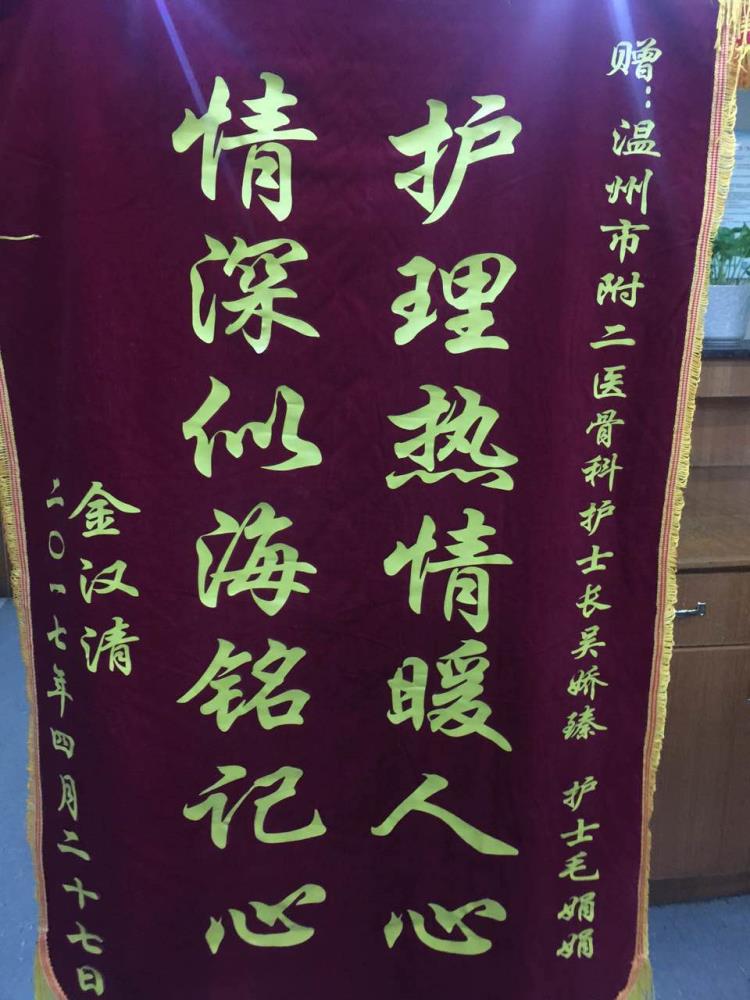 赠:温州市附二医骨科护士长吴娇臻 护士毛娟娟
护理热情暖人心
情深似海铭记心
金汉清
二〇一七年四月二十七日